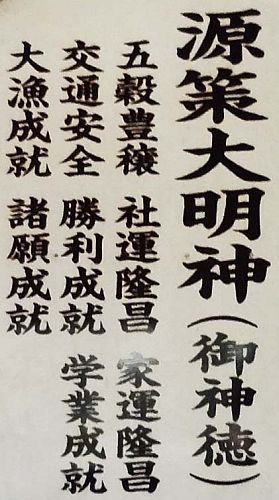 源策大明神（御神徳）
五穀豊穣　社運隆昌　家運隆昌
交通安全　勝利成就　学業成就
大漁成就　諸願成就